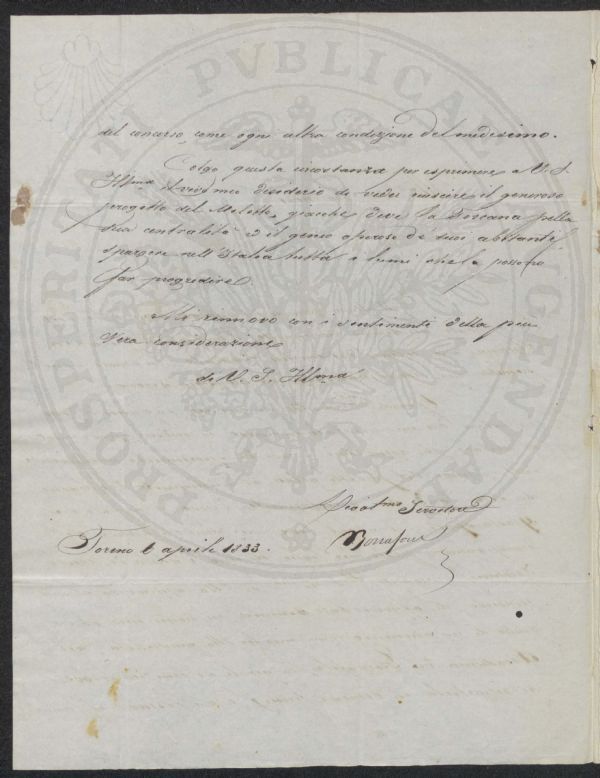 PROSPERITATI PVBLICAE AVGENDAE
del concorso, come ogni altra condizione del medesimo.
Colgo questa circostanza per esprimere a V. S.
Illma il vivo mio desiderio di veder riuscire il generoso
progetto del giacchè deve la Toscana nella
sua centralità ed il genio operoso de' suoi abitanti
spargere nell'Italia tutta i lumi che la possono
far progredire.
Mi rinnovo con i sentimenti della più
vera considerazione
di V. S. Illma
Devotmo Servitore
Bonafous
Torino 6 aprile 1833.